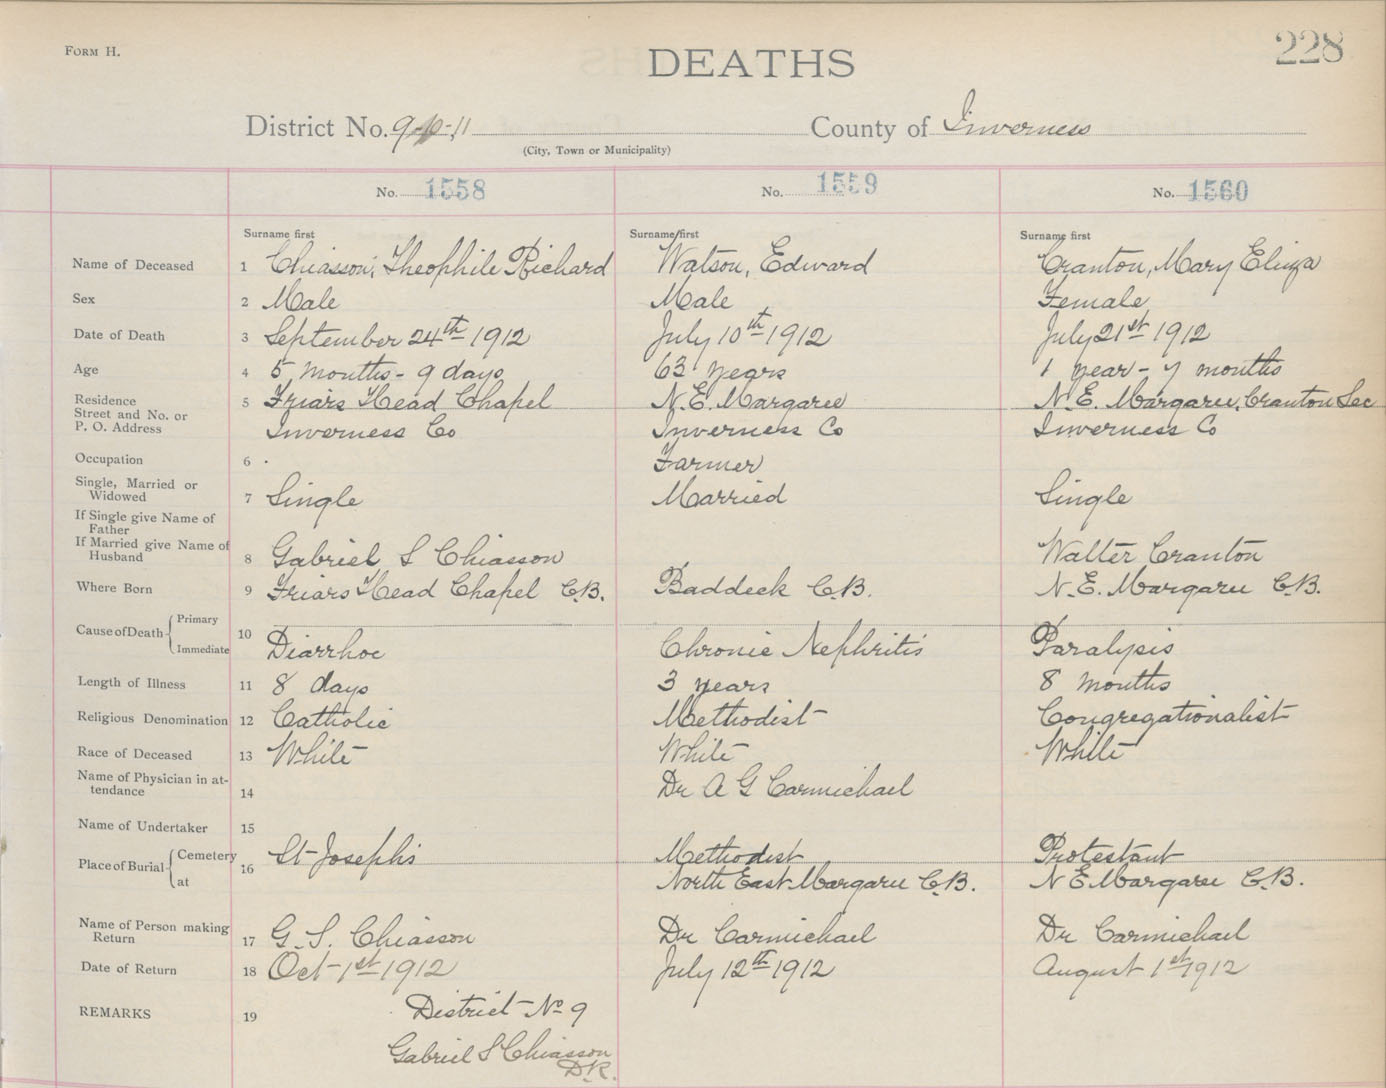 FORM H.
228
DEATHS
District No. 9-10-11
County of Inverness
(City, Town or Municipality)
No. 1558
No. 1559
No. 1560
Surname first
Surname first
Surname first
Name of Deceased 1 Chiasson, Theophile Richard Watson, Edward Cranton, Mary Eliza
Sex 2 Male Male Female
Date of Death 3 September 24th 1912 July 10th 1912 July 21st 1912
Age 4 5 months - 9 days 63 years 1 year - 7 months
Residence 5 Friars Head Chapel N.E. Margaree N.E. Margaree, Cranton Sec
Street and No. or
P. O. Address Inverness Co Inverness Co Inverness Co
Occupation 6 . Farmer
Single, Married or
Widowed 7 Single Married Single
If Single give Name of
Father
If Married give Name of
Husband 8 Gabriel S Chiasson Walter Cranton
Where Born 9 Friars Head Chapel C.B. Baddeck C.B. N.E. Margaree C.B.
Cause of Death Primary
Immediate 10 Diarrhoe Chronic Nephritis Paralysis
Length of Illness 11 8 days 3 years 8 months
Religious Denomination 12 Catholic Methodist Congregationalist
Race of Deceased 13 White White White
Name of Physician in at-
tendance 14 Dr A G Carmichael
Name of Undertaker 15
Place of Burial Cemetery St Joseph's Methodist Protestant
at 16 North East Margaree C.B. N E Margaree C.B.
Name of Person making
Return 17 G. S. Chiasson Dr Carmichael Dr Carmichael
Date of Return 18 Oct 1st 1912 July 12th 1912 August 1st 1912
REMARKS 19 District No 9
Gabriel S Chiasson
D.R.